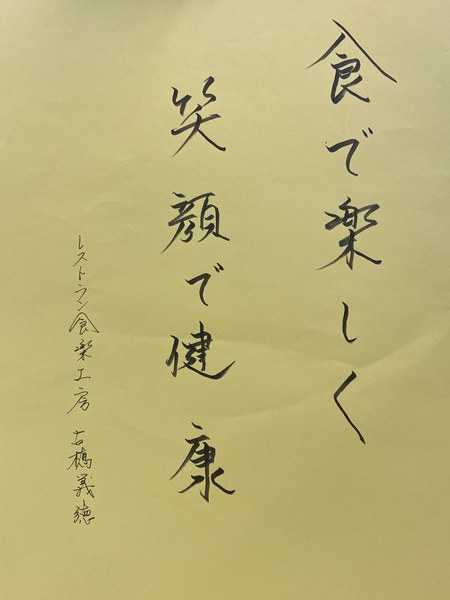 食で楽しく
笑顔で健康
レストラン食楽工房 古橋義徳